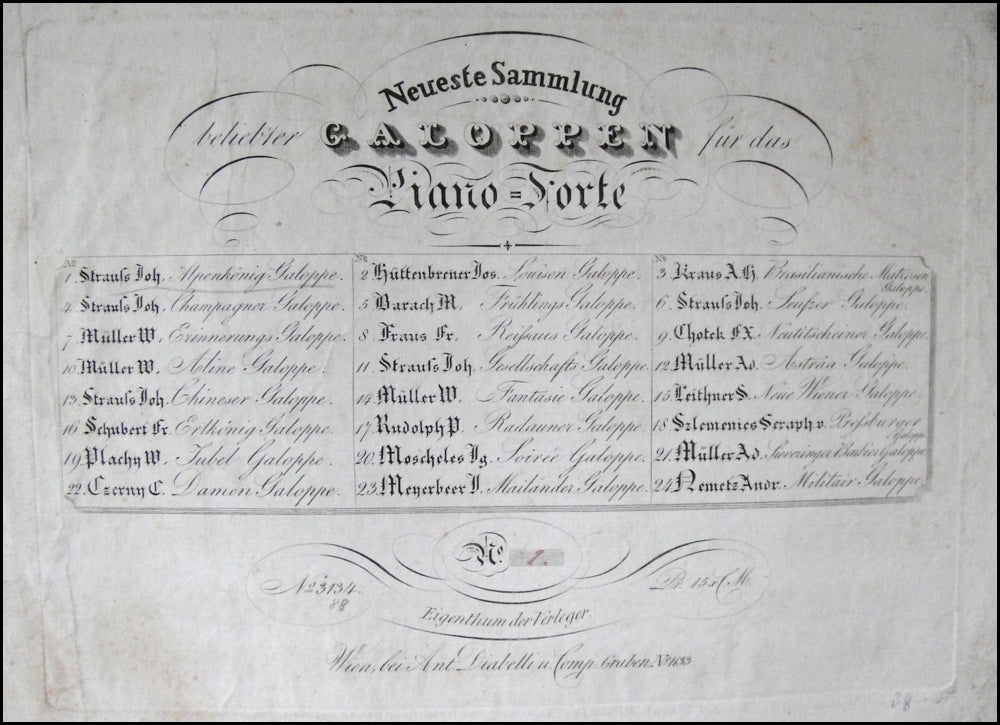 Neueste Sammlung
beliebter GALOPPEN für das
Piano=Forte
No 1. Strauſs Joh. Alpenkönig Galoppe. No 2 Hüttenbrener Jos. Louisen Galoppe. No 3 Kraus A.H. Brasilianische Matrosen Galoppe.
4. Strauſs Joh. Champagner Galoppe. 5 Barach M. Frühlings Galoppe. 6 Strauſs Joh. Seufzer Galoppe.
7 Müller W. Erinnerungs Galoppe. 8 Fraus Fr. Reiſsaus Galoppe. 9 Chotek F.X. Neutitscheiner Galoppe.
10 Müller W. Aline Galoppe. 11 Strauſs Joh. Gesellschafts Galoppe. 12 Müller Ad. Asträa Galoppe.
13 Strauſs Joh. Chineser Galoppe. 14 Müller W. Fantasie Galoppe. 15 Leithner S. Neue Wiener Galoppe.
16 Schubert Fr. Erlkönig Galoppe. 17 Rudolph P. Radauner Galoppe. 18 Szlemenics Seraph. v. Preſsburger Galoppe
19. Plachy W. Jubel Galoppe. 20. Moscheles Ig. Soirée Galoppe. 21. Müller Ad. Sieveringer Barbier Galoppe.
22. Czerny C. Damen Galoppe. 23. Meyerbeer J. Mailänder Galoppe. 24 Nemetz Andr. Militair Galoppe.
No. 1.
No 3134. Pr. 15 x C.M.
88
Eigenthum der Verleger.
Wien, bei Ant. Diabelli u. Comp. Graben No 1133